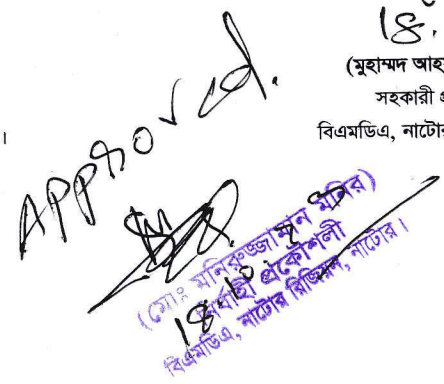 ১৪.
(মুহাম্মদ আহ
সহকারী প্র
বিএমডিএ, নাটোর
।
Approved.
(মোঃ মনিরুজ্জামান মনির)
নির্বাহী প্রকৌশলী
বিএমডিএ, নাটোর রিজিয়ন, নাটোর।